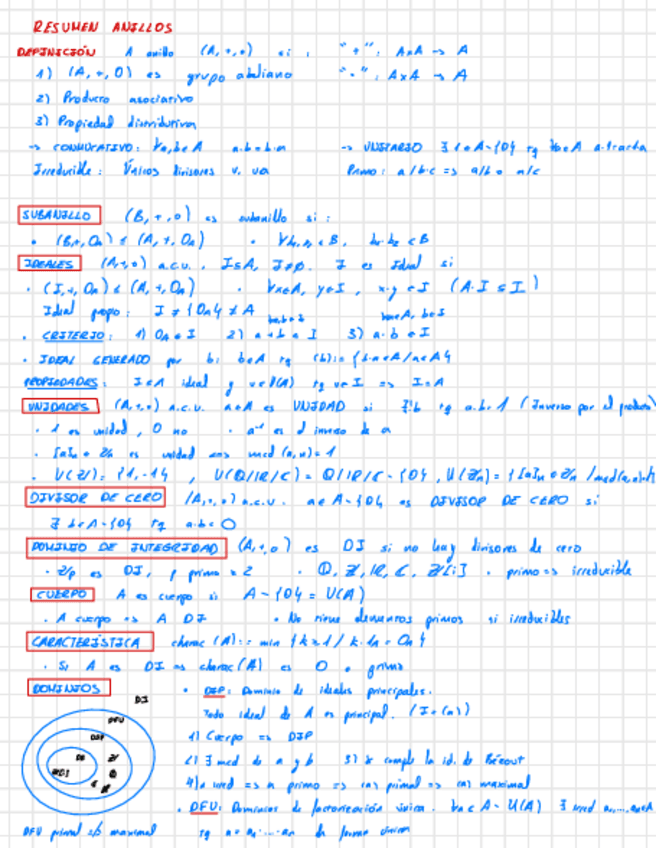 RESUMEN ANILLOS
DEFINICIÓN A anillo (A,+,·) si : "+": AxA → A
1) (A,+,0) es grupo abeliano "·": AxA → A
2) Producto asociativo
3) Propiedad distributiva
→ CONMUTATIVO: ∀a,b∈A a·b=b·a → UNITARIO ∃ 1∈A-{0} tq ∀a∈A
Irreducible: Únicos divisores u, ua Primo: a/b·c => a/b o a/c
SUBANILLO (B,+,·) es subanillo si :
· (B,+,0A) ≤ (A,+,0A) · ∀b1,b2∈B, b1·b2∈B
IDEALES (A,+,·) a.c.u., I⊆A, I≠∅. I es Ideal si
· (I,+,0A) ≤ (A,+,0A) · ∀x∈A, y∈I, x·y∈I (A·I⊆I)
Ideal propio: I ≠ {0A} ≠ A
· CRITERIO: 1) 0A∈I 2) a+b∈I 3) a·b∈I
· IDEAL GENERADO por b: b∈A tq (b):={b·a∈A/a∈A}
PROPIEDADES: I⊆A ideal y u∈U(A) tq u∈I => I=A
UNIDADES (A,+,·) a.c.u. a∈A es UNIDAD si ∃!b tq a·b=1 (Inverso por el producto)
· 1 es unidad, 0 no · a⁻¹ es el inverso de a
· [a]n∈Zn es unidad <=> mcd(a,n)=1
· U(Z)={1,-1}, U(Q/R/C)=Q/R/C-{0}, U(Zn)={[a]n∈Zn/mcd(a,n)=1}
DIVISOR DE CERO (A,+,·) a.c.u. a∈A-{0} es DIVISOR DE CERO si
∃ b∈A-{0} tq a·b=0
DOMINIO DE INTEGRIDAD (A,+,·) es DI si no hay divisores de cero
· Zp es DI, p primo ≥2 · Q, Z, R, C, Z[i] · primo => irreducible
CUERPO A es cuerpo si A-{0}=U(A)
· A cuerpo => A DI · No tiene elementos primos si irreducibles
CARACTERÍSTICA charac(A):= min{k≥1/k·1A=0A}
· Si A es DI => charac(A) es 0 o primo
DOMINIOS · DIP: Dominio de ideales principales.
DI
DFU
DIP
Todo ideal de A es principal. (I=(a))
1) Cuerpo => DIP
2) ∃ mcd de a y b 3) Se cumple la id. de Bézout
4) a primo => (a) primal => (a) maximal
· DFU: Dominios de factorización única. ∀a∈A-U(A)
DFU primal maximal tq a= de forma única